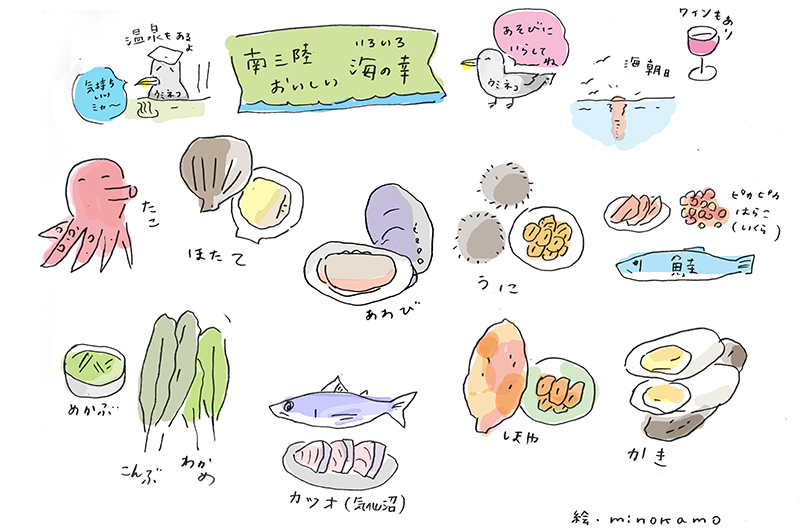 温泉もあるよ
気持ち
いい
ミャ〜
ウミネコ
南三陸 いろいろ
おいしい 海の幸
あそびに
いらして
ね
ウミネコ
海朝日
ワインもあり
たこ
ほたて
あわび
うに
ピカピカ
はらこ
(いくら)
鮭
めかぶ
こんぶ
わかめ
カツオ(気仙沼)
ほや
かき
絵・minokamo